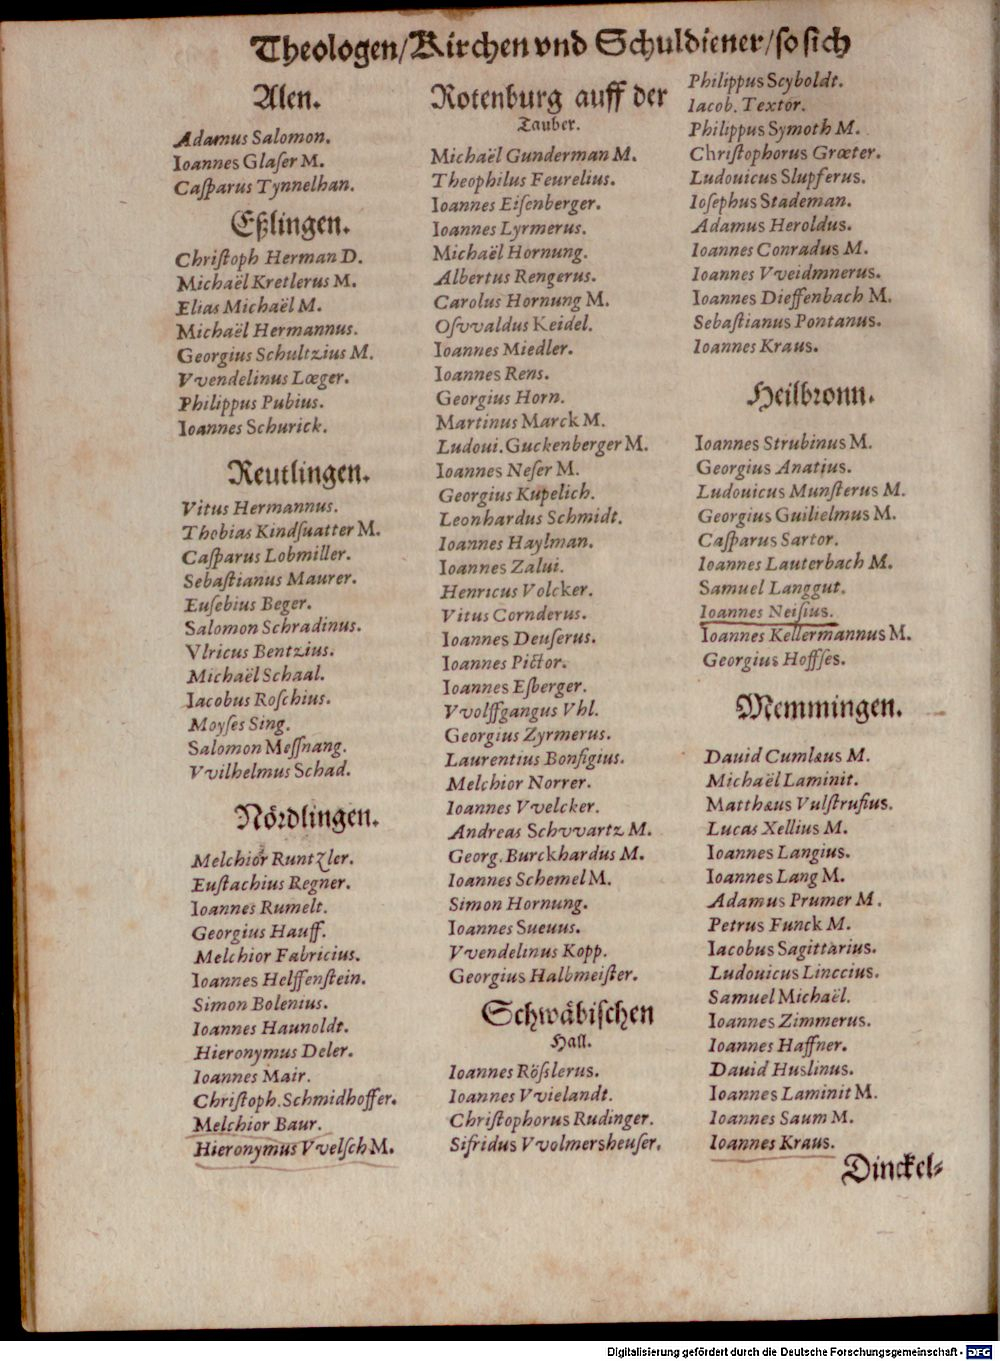 Theologen/Kirchen vnd Schuldiener/so sich
Alen.
Adamus Salomon.
Ioannes Glaſer M.
Caſparus Tynnelhan.
Eßlingen.
Chriſtoph Herman D.
Michaël Kretlerus M.
Elias Michaël M.
Michaël Hermannus.
Georgius Schultzius M.
Vvendelinus Lœger.
Philippus Pubius.
Ioannes Schurick.
Reutlingen.
Vitus Hermannus.
Thobias Kindſuatter M.
Caſparus Lobmiller.
Sebaſtianus Maurer.
Euſebius Beger.
Salomon Schradinus.
Vlricus Bentzius.
Michaël Schaal.
Iacobus Roſchius.
Moyſes Sing.
Salomon Meſſnang.
Vvilhelmus Schad.
Nördlingen.
Melchior Runtzler.
Euſtachius Regner.
Ioannes Rumelt.
Georgius Hauff.
Melchior Fabricius.
Ioannes Helffenſtein.
Simon Bolenius.
Ioannes Haunoldt.
Hieronymus Deler.
Ioannes Mair.
Chriſtoph. Schmidhoffer.
Melchior Baur.
Hieronymus Vvelſch M.
Rotenburg auff der
Tauber.
Michaël Gunderman M.
Theophilus Feurelius.
Ioannes Eiſenberger.
Ioannes Lyrmerus.
Michaël Hornung.
Albertus Rengerus.
Carolus Hornung M.
Oſvvaldus Keidel.
Ioannes Miedler.
Ioannes Rens.
Georgius Horn.
Martinus Marck M.
Ludoui. Guckenberger M.
Ioannes Neſer M.
Georgius Kupelich.
Leonhardus Schmidt.
Ioannes Haylman.
Ioannes Zalui.
Henricus Volcker.
Vitus Cornderus.
Ioannes Deuſerus.
Ioannes Pictor.
Ioannes Eſberger.
Vvolffgangus Vhl.
Georgius Zyrmerus.
Laurentius Bonfigius.
Melchior Norrer.
Ioannes Vvelcker.
Andreas Schvvartz M.
Georg. Burckhardus M.
Ioannes Schemel M.
Simon Hornung.
Ioannes Sueuus.
Vvendelinus Kopp.
Georgius Halbmeiſter.
Schwäbiſchen
Hall.
Ioannes Rößlerus.
Ioannes Vvielandt.
Chriſtophorus Rudinger.
Sifridus Vvolmersheuſer.
Philippus Scyboldt.
Iacob. Textor.
Philippus Symoth M.
Chriſtophorus Grœter.
Ludouicus Slupferus.
Ioſephus Stademan.
Adamus Heroldus.
Ioannes Conradus M.
Ioannes Vveidmnerus.
Ioannes Dieffenbach M.
Sebaſtianus Pontanus.
Ioannes Kraus.
Heilbronn.
Ioannes Strubinus M.
Georgius Anatius.
Ludouicus Munſterus M.
Georgius Guilielmus M.
Caſparus Sartor.
Ioannes Lauterbach M.
Samuel Langgut.
Ioannes Neiſius.
Ioannes Kellermannus M.
Georgius Hoffſes.
Memmingen.
Dauid Cumlæus M.
Michaël Laminit.
Matthæus Vulſtrufius.
Lucas Xellius M.
Ioannes Langius.
Ioannes Lang M.
Adamus Prumer M.
Petrus Funck M.
Iacobus Sagittarius.
Ludouicus Linccius.
Samuel Michaël.
Ioannes Zimmerus.
Ioannes Haffner.
Dauid Huslinus.
Ioannes Laminit M.
Ioannes Saum M.
Ioannes Kraus.
Dinckel-
Digitalisierung gefördert durch die Deutsche Forschungsgemeinschaft - DFG